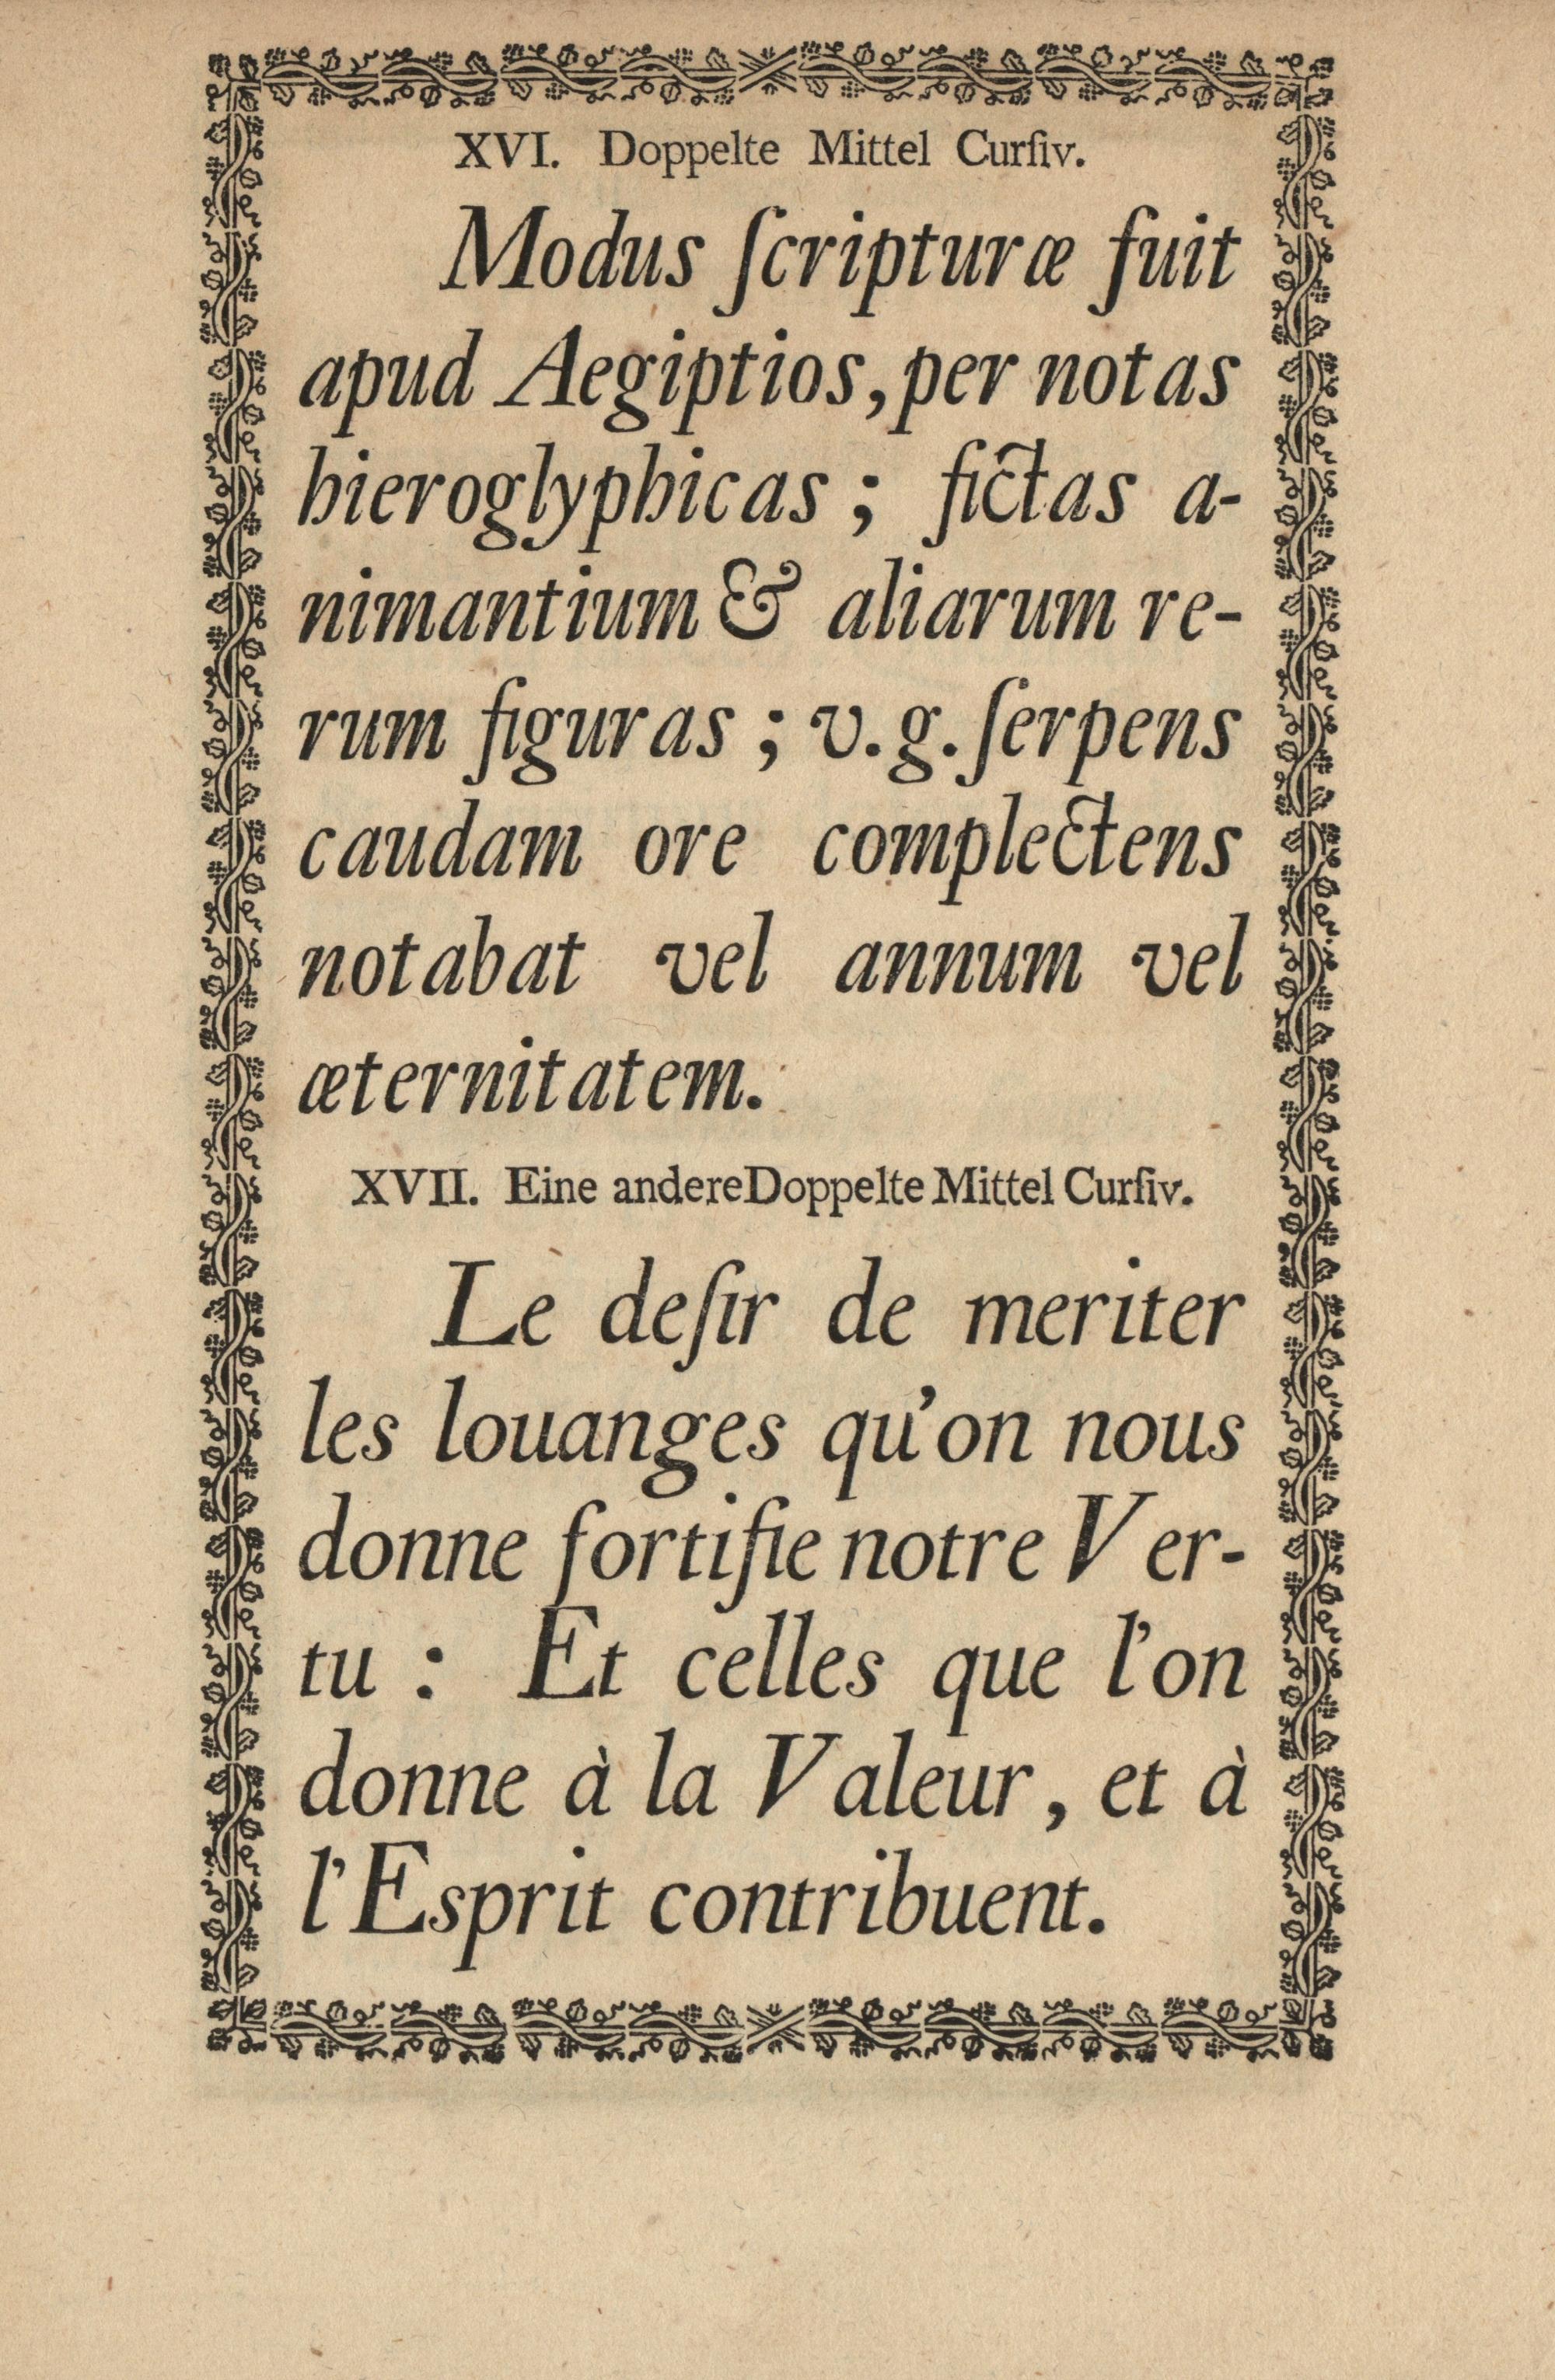 XVI. Doppelte Mittel Curſiv.
Modus ſcripturæ fuit
apud Aegiptios, per notas
hieroglyphicas ; fictas a-
nimantium & aliarum re-
rum figuras ; v. g. ſerpens
caudam ore complectens
notabat vel annum vel
æternitatem.
XVII. Eine andere Doppelte Mittel Curſiv.
Le deſir de meriter
les louanges qu'on nous
donne fortifie notre Ver-
tu : Et celles que l'on
donne à la Valeur, et à
l'Esprit contribuent.